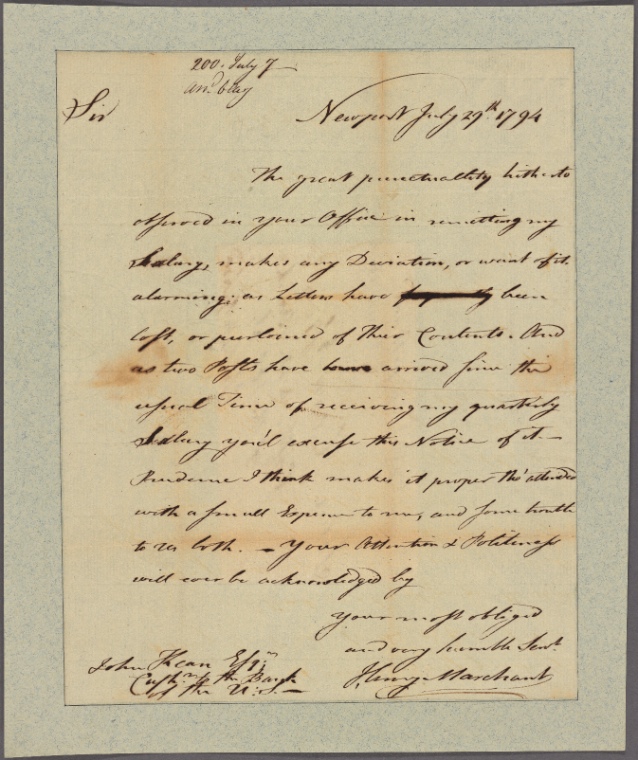 200. July 7
an.d 6 Aug
Sir
Newport July 29th. 1794
The great punctuallity hitherto
observed in your Office in remitting my
Salary, makes any Deviation, or want of it
alarming; as Letters have been
lost, or purloined of their Contents. And
as two Posts have arrived since the
usual Time of receiving my quarterly
Salary you'l excuse this Notice of it—
Prudence I think makes it proper tho' attended
with a small Expence to me, and some trouble
to us both. — Your Attention & Politeness
will ever be acknowledged by
your most obliged
and very humble Servt.
Henry Marchant
John Kean Esqr.
Cashr. to the Bank
of the U: S. —